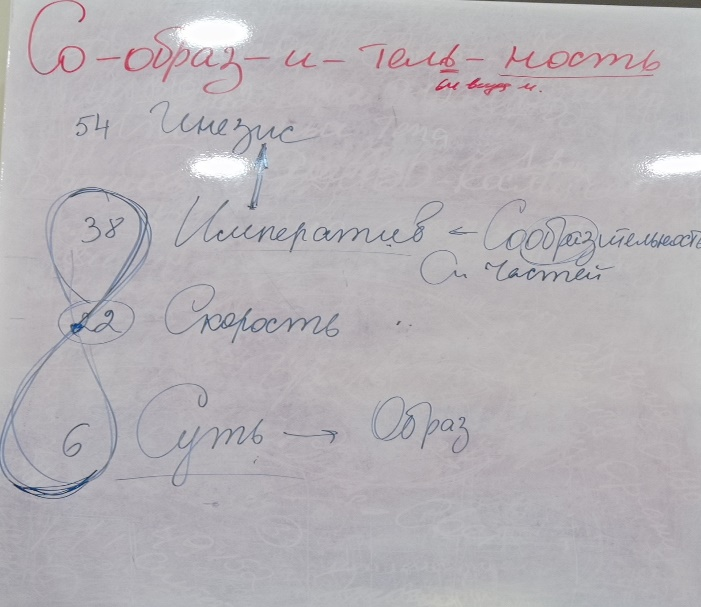 Со-образ-и-тель-ность
54 Инезис
38 Императив ← Сообразительность
Си Частей
22 Скорость ..
6 Суть → Образ